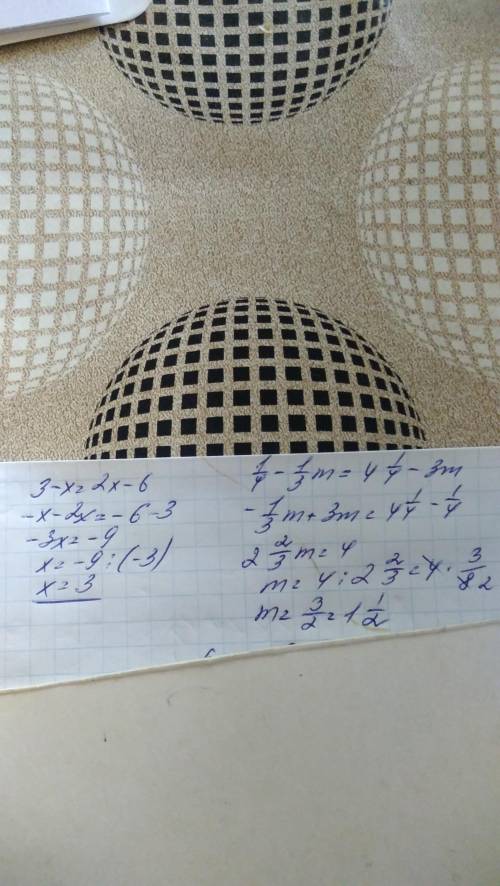 3-x=2x-6
-x-2x=-6-3
-3x=-9
x=-9:(-3)
x=3
1/4 - 1/3 m = 4 1/4 - 3m
- 1/3 m + 3m = 4 1/4 - 1/4
2 2/3 m = 4
m = 4 : 2 2/3 = 4 · 3/8 2
m = 3/2 = 1 1/2